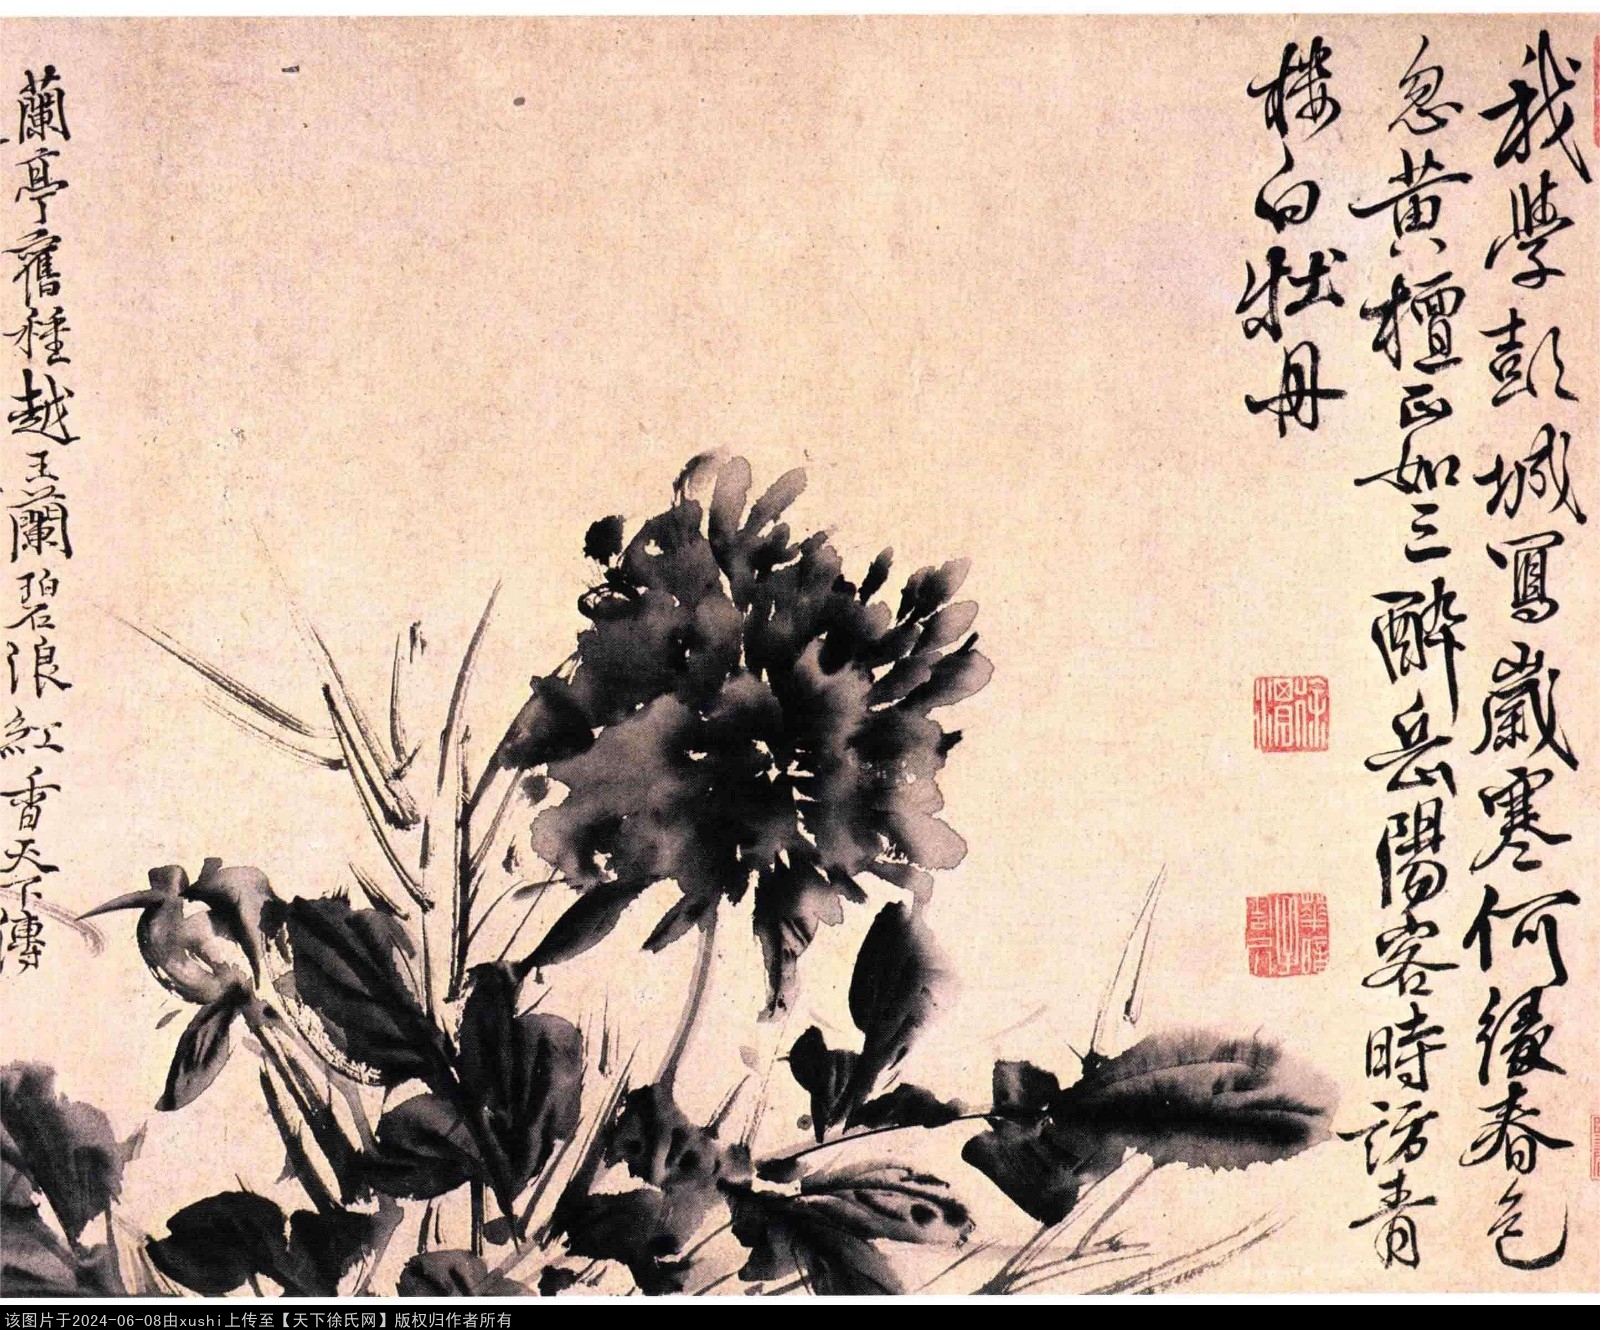 我學彭城寫歲寒何緣春色
忽黄檀正如三醉岳陽客時訪青
樓白牡丹
蘭亭舊種越王蘭碧浪紅香天下傳
徐渭
该图片于2024-06-08由xushi上传至【天下徐氏网】版权归作者所有